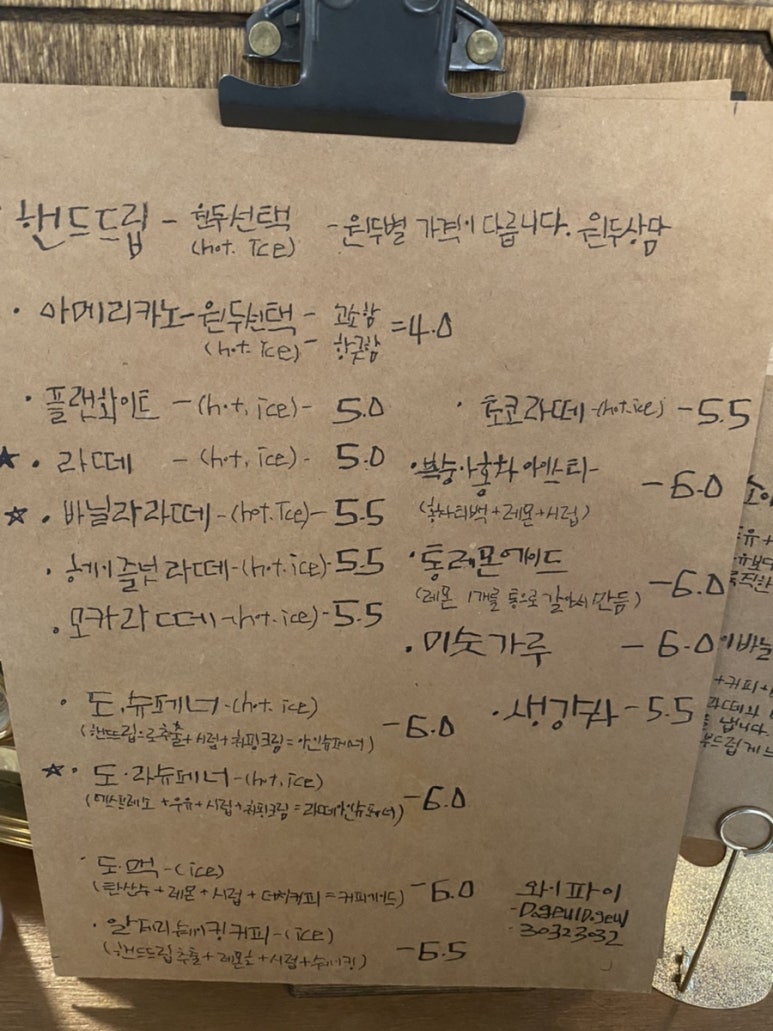 핸드드립 - 원두선택 (hot. ice) - 원두별 가격이 다릅니다. 원두상담
· 아메리카노 - 원두선택 (hot. ice) - 고소함 - 향긋함 = 4.0
· 플랫화이트 - (hot, ice) - 5.0
★ · 라떼 - (hot, ice) - 5.0
☆ · 바닐라라떼 - (hot. Ice) - 5.5
· 헤이즐넛 라떼 - (hot. ice) - 5.5
· 모카라떼 - (hot. ice) - 5.5
· 도.슈페너 - (hot. ice) - 6.0
(핸드드립으로추출 + 시럽 + 휘핑크림 = 아인슈페너)
☆ · 도.라슈페너 - (hot, ice) - 6.0
(에스프레소 + 우유 + 시럽 + 휘핑크림 = 라떼아인슈페너)
· 도.맥 - (ice) - 6.0
(탄산수 + 레몬 + 시럽 + 더치커피 = 커피에이드)
· 알제리 쉐이킹커피 - (ice) - 6.5
(핸드드립 추출 + 레몬즙 + 시럽 + 쉐이킹)
· 초코라떼 - (hot. ice) - 5.5
· 복숭아홍차 아이스티 - 6.0
(홍차티백 + 레몬 + 시럽)
· 통레몬에이드 - 6.0
(레몬 1개를 통으로 갈아서 만듬)
· 미숫가루 - 6.0
· 생강차 - 5.5
와이파이
- D.geulD.geul
· 30323032
+커피+
라떼와
냅니다.
부드럽게